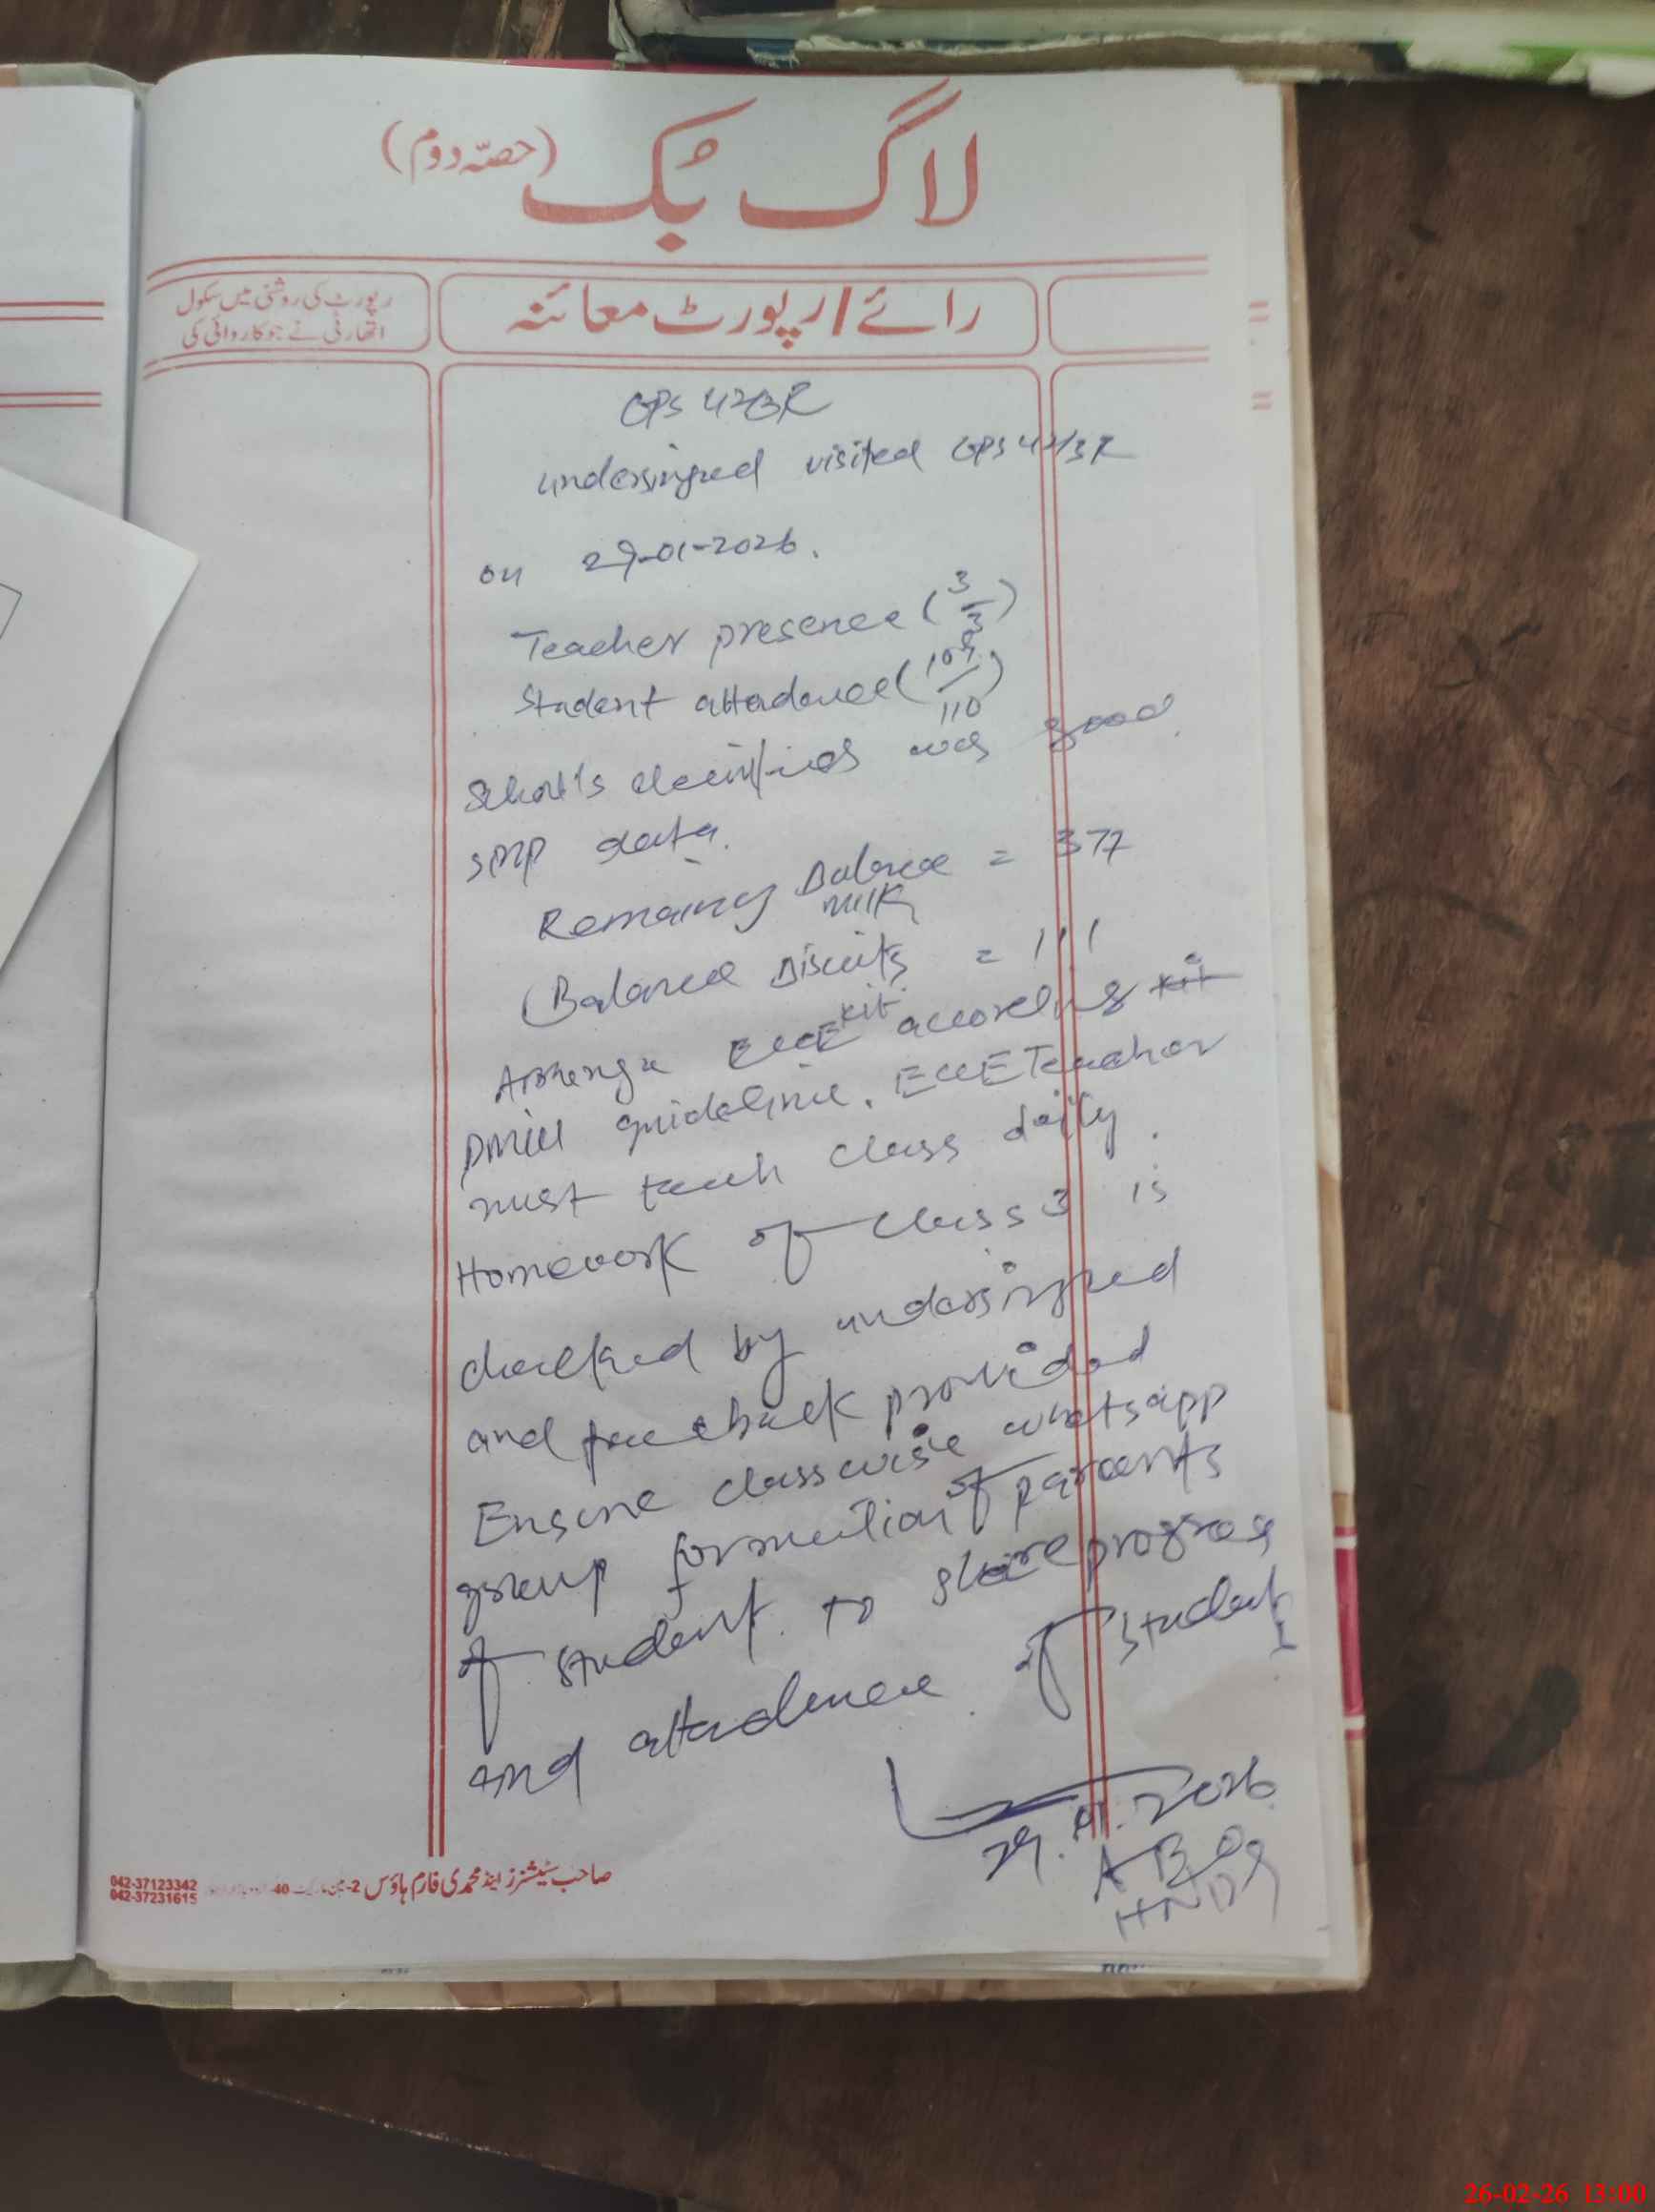 لاگ بُک (حصّہ دوم)
رائے/رپورٹ معائنہ
رپورٹ کی روشنی میں سکول
اتھارٹی نے جو کاروائی کی
GPS 42/3R
undersigned visited GPS 42/3R
on 29-01-2026.
Teacher presence (3/3)
Student attadence (109/110)
School's was good.
data.
Remaining Balance milk = 377
(Balance Biscuits = 111
Arrenge ECCE kit according kit
PMIU guideline. ECCE Teacher
must teach class daily.
Homework of class 3 is
checked by undersigned
and feedback provided
Ensure classwise whatsapp
group formation of parents
of student. to share progress
and attadence of student
29.01.2026
صاحب سٹیشنرز اینڈ محمدی فارم ہاؤس
042-37123342
042-37231615
26-02-26 13:00